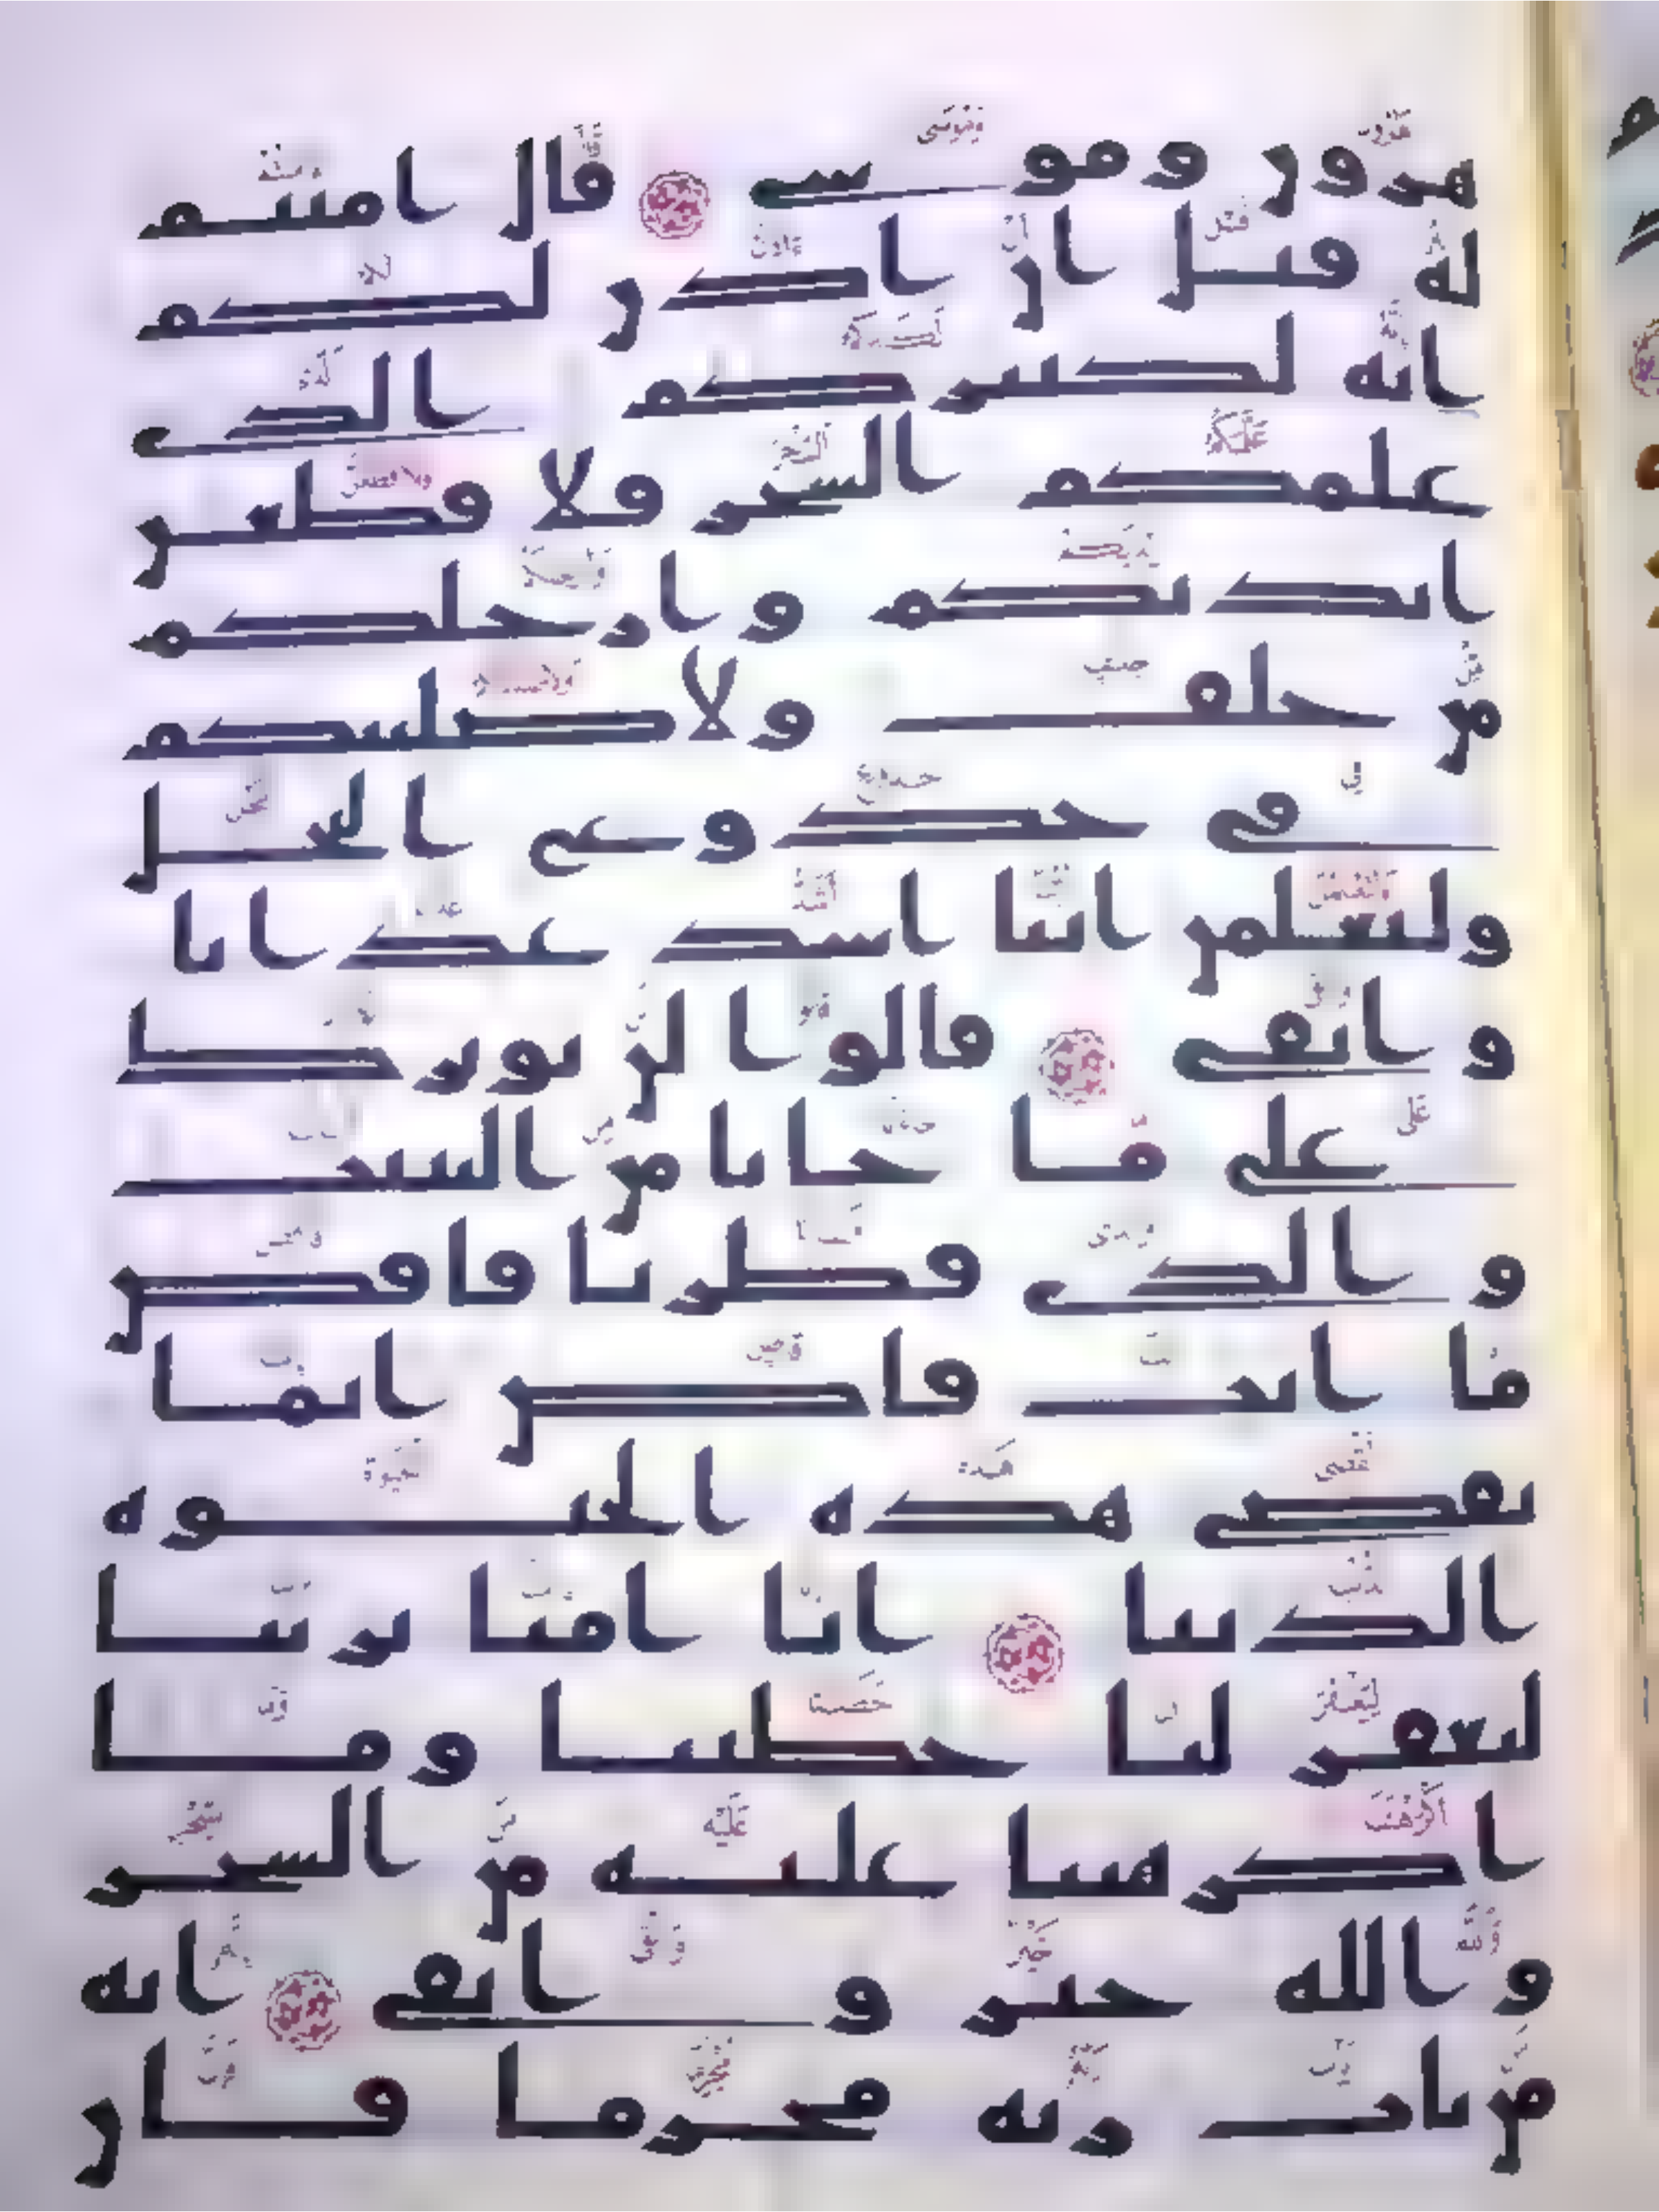 هرون وموسى قال امنتم
له قبل ان اذن لكم
انه لكبيركم الذى
علمكم السحر فلا قطعن
ايديكم وارجلكم
من خلف ولاصلبنكم
فى جذوع النخل
ولتعلمن اينا اشد عذابا
وابقى قالوا لن نوثرك
على ما جانا من البينت
والذى فطرنا فاقض
ما انت قاض انما
تقضى هذه الحيوه
الدنيا انا امنا بربنا
ليغفر لنا خطينا وما
اكرهتنا عليه من السحر
والله خير وابقى انه
من يات ربه مجرما فان